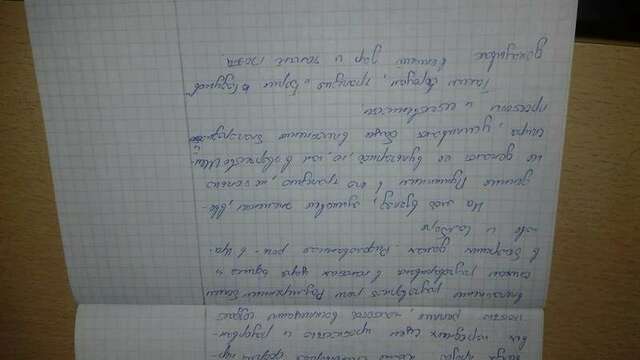 вых народных сцен кроткостью и разорван-
ностью реплик, частота восклицании создает
впечатление разговорной речи Размеренным белым
стихом разговаривают в палатах царя
в боярских домах. Рифмованная речь - в Кра-
кове и Самборе
На мой взгляд, языковые элементы, вве-
денные Пушкиным в его трагедию, не только
не делают ее вульгарной, но, как в творчестве Шек-
спира, усиливают общее впечатление благородной
простоты и естественности.
Таким образом, трагедия "Борис Годунов"
доказывае великий дар и талант поэта